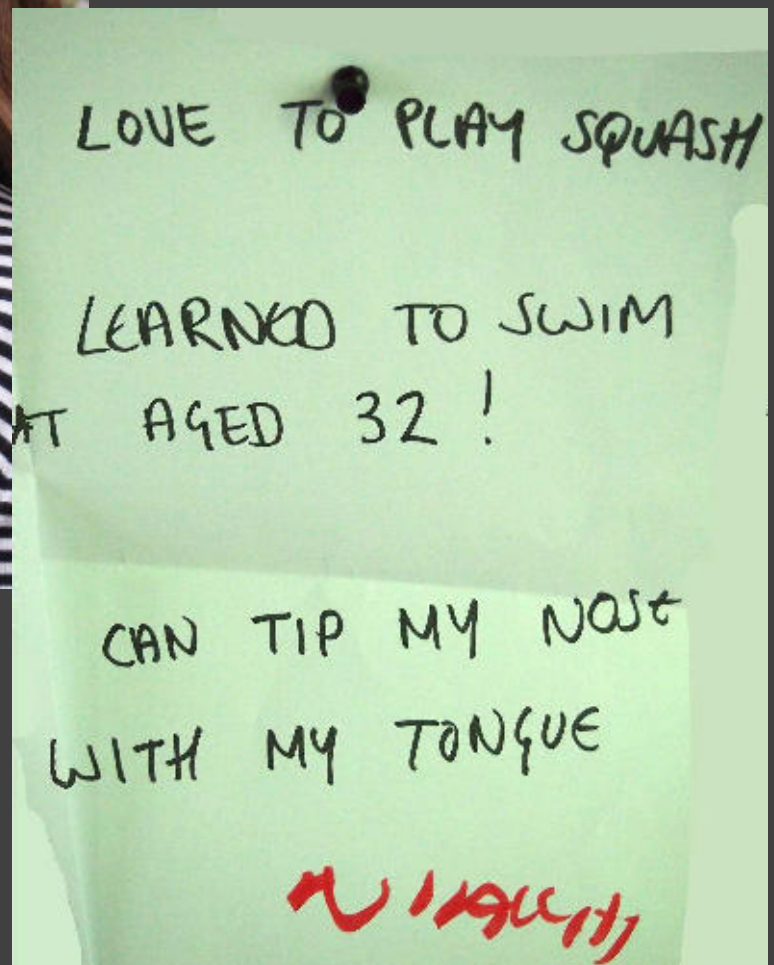 LOVE TO PLAY SQUASH
LEARNED TO SWIM
AT AGED 32!
CAN TIP MY NOSE
WITH MY TONGUE